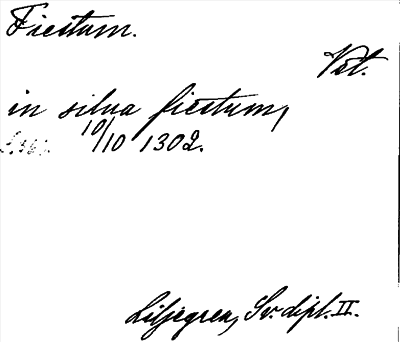 Fiestum.
Vst.
in silva fiestum,
10/10 1302.
Liljegren, Sv. dipl. II.